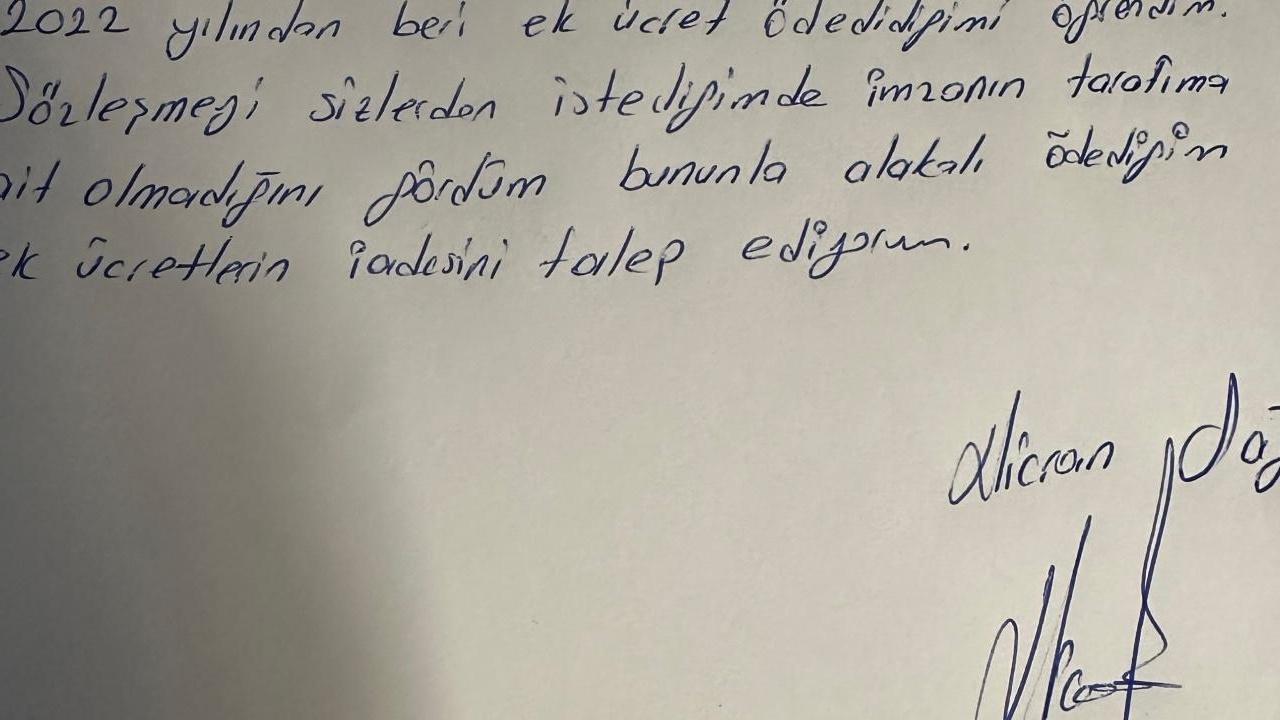 2022 yılından beri ek ücret ödedidiğimi öğrendim.
Sözleşmeyi sizlerden istediğimde imzanın tarafıma
ait olmadığını gördüm bununla alakalı ödediğim
ek ücretlerin iadesini talep ediyorum.
Alican Dağ